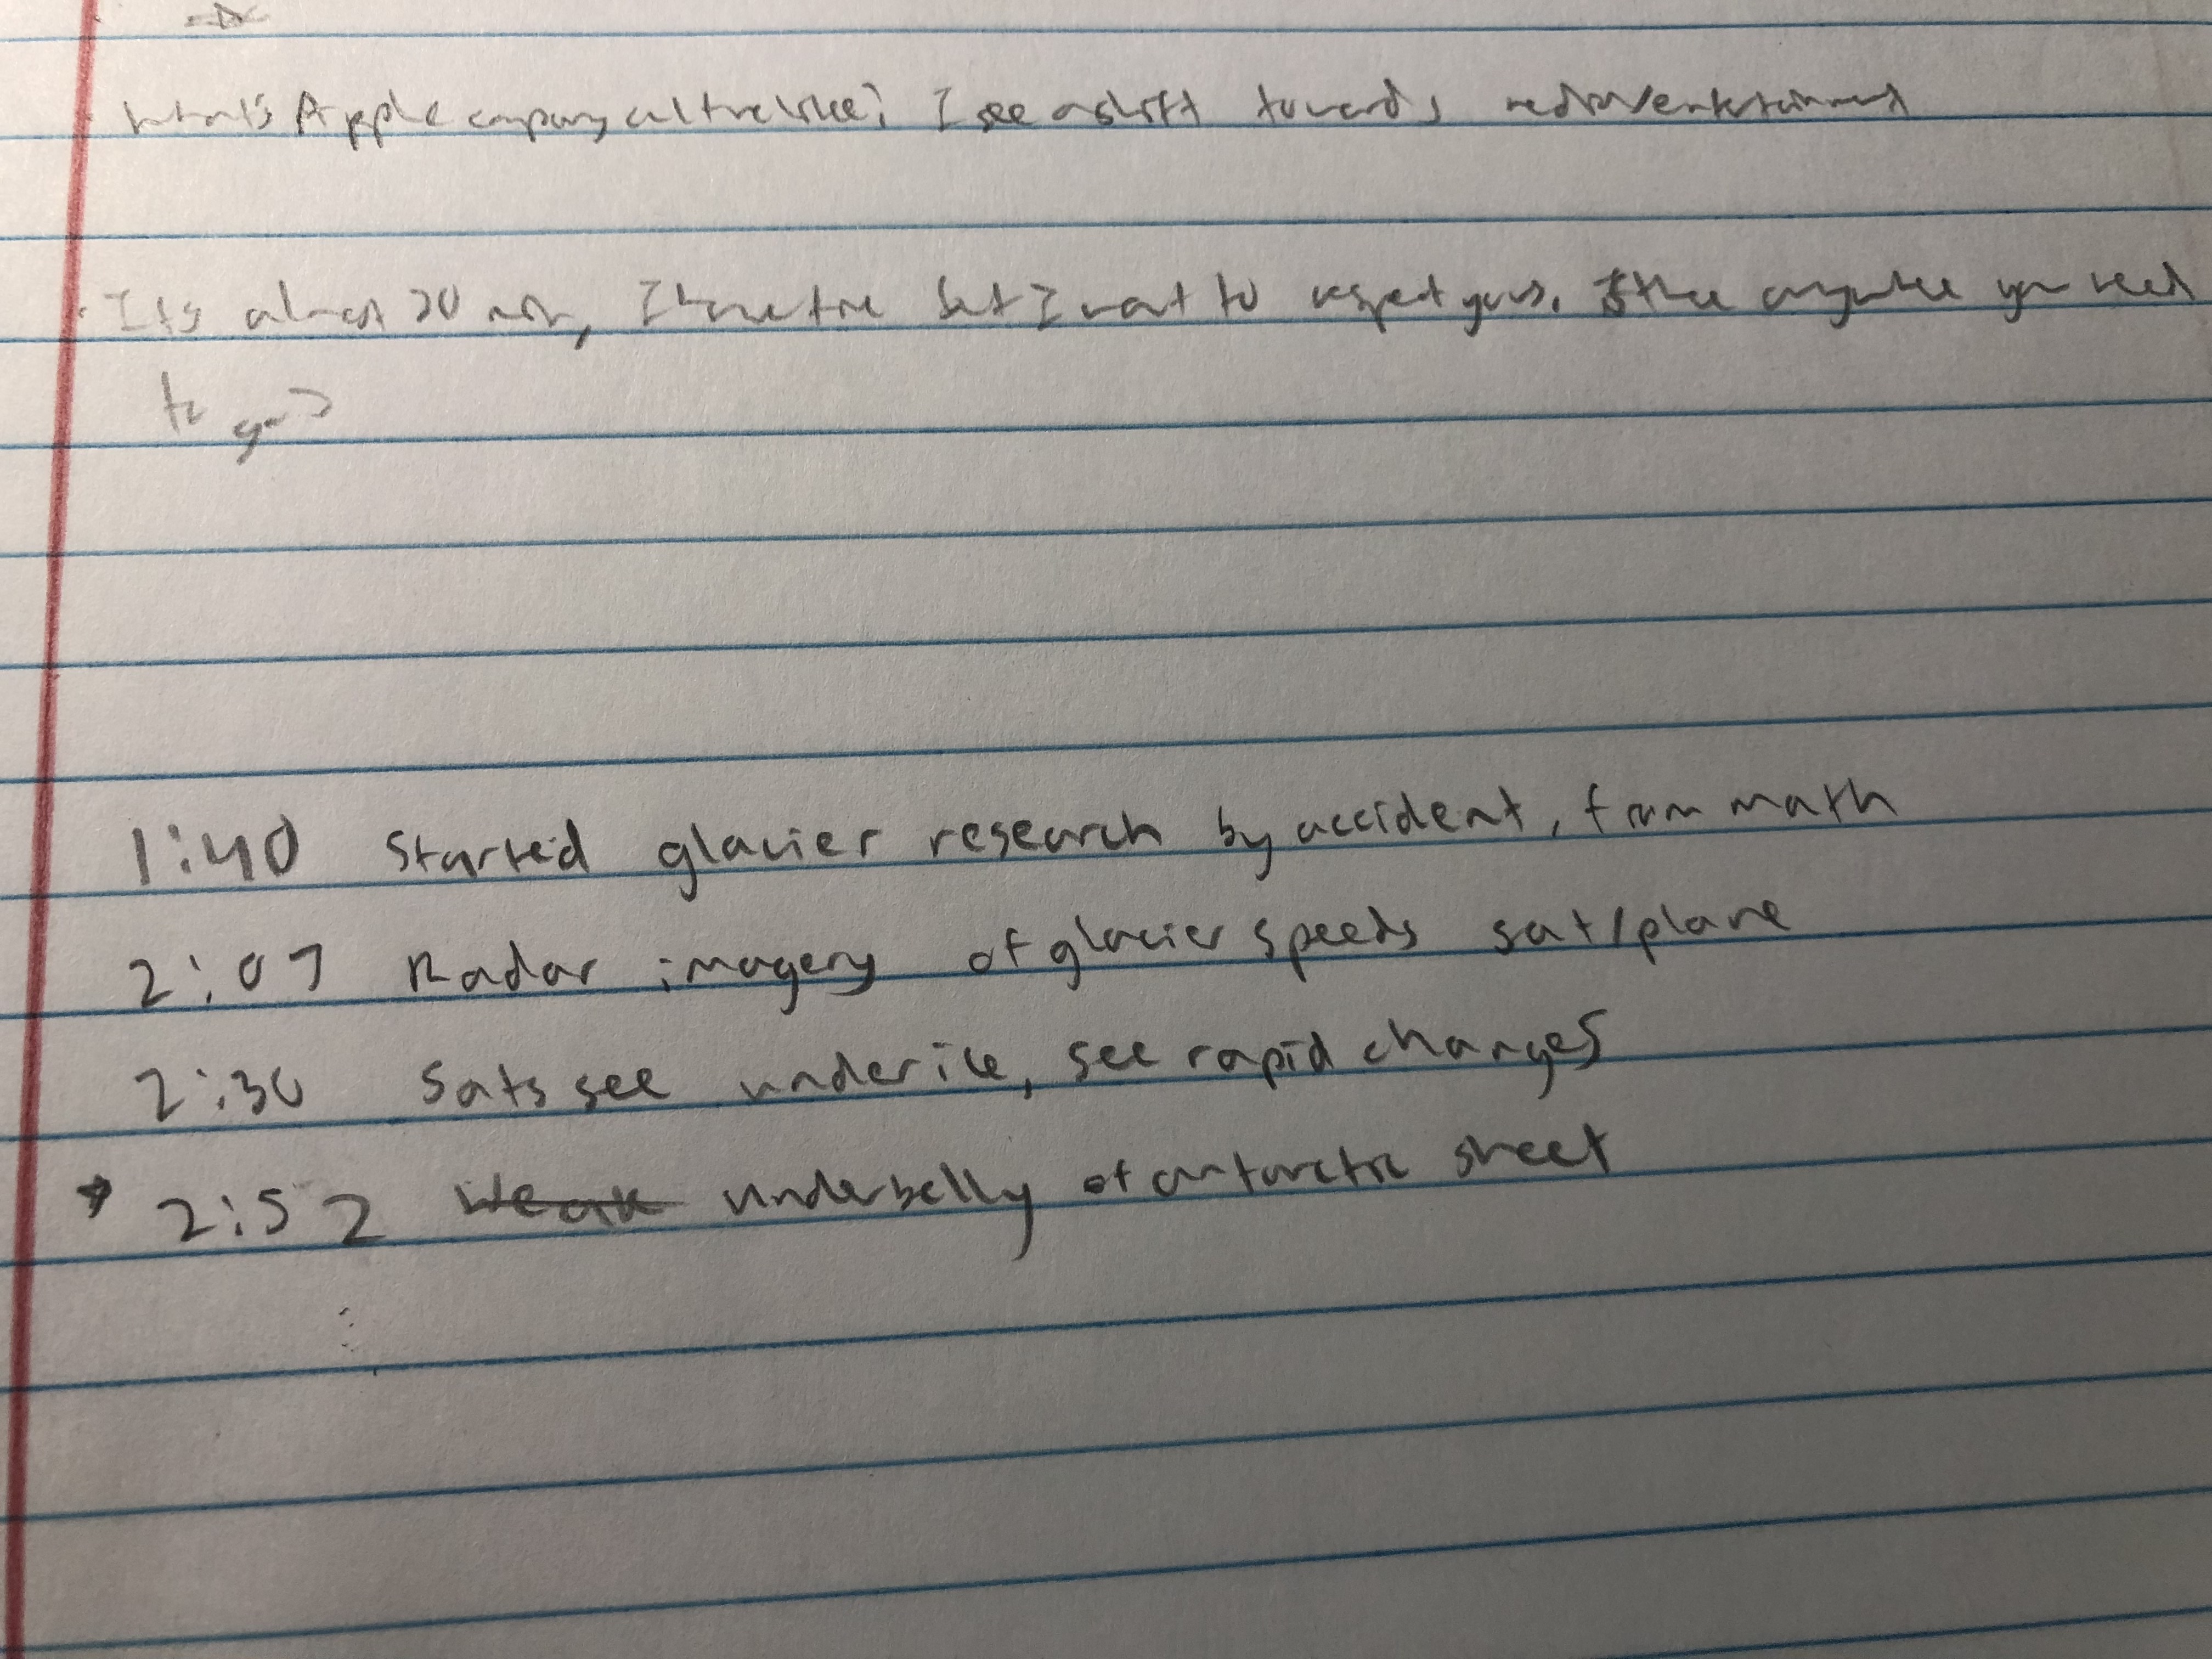 What's Apple company culture like? I see a shift towards
Its almost 30 now, I have time but I want to respect yours. is there anywhere you need
to go?
1:40 started glacier research by accident, from math
2:07 Radar imagery of glacier speeds sat/plane
2:30 sats see under ice, see rapid changes
* 2:52 underbelly of antarctic sheet